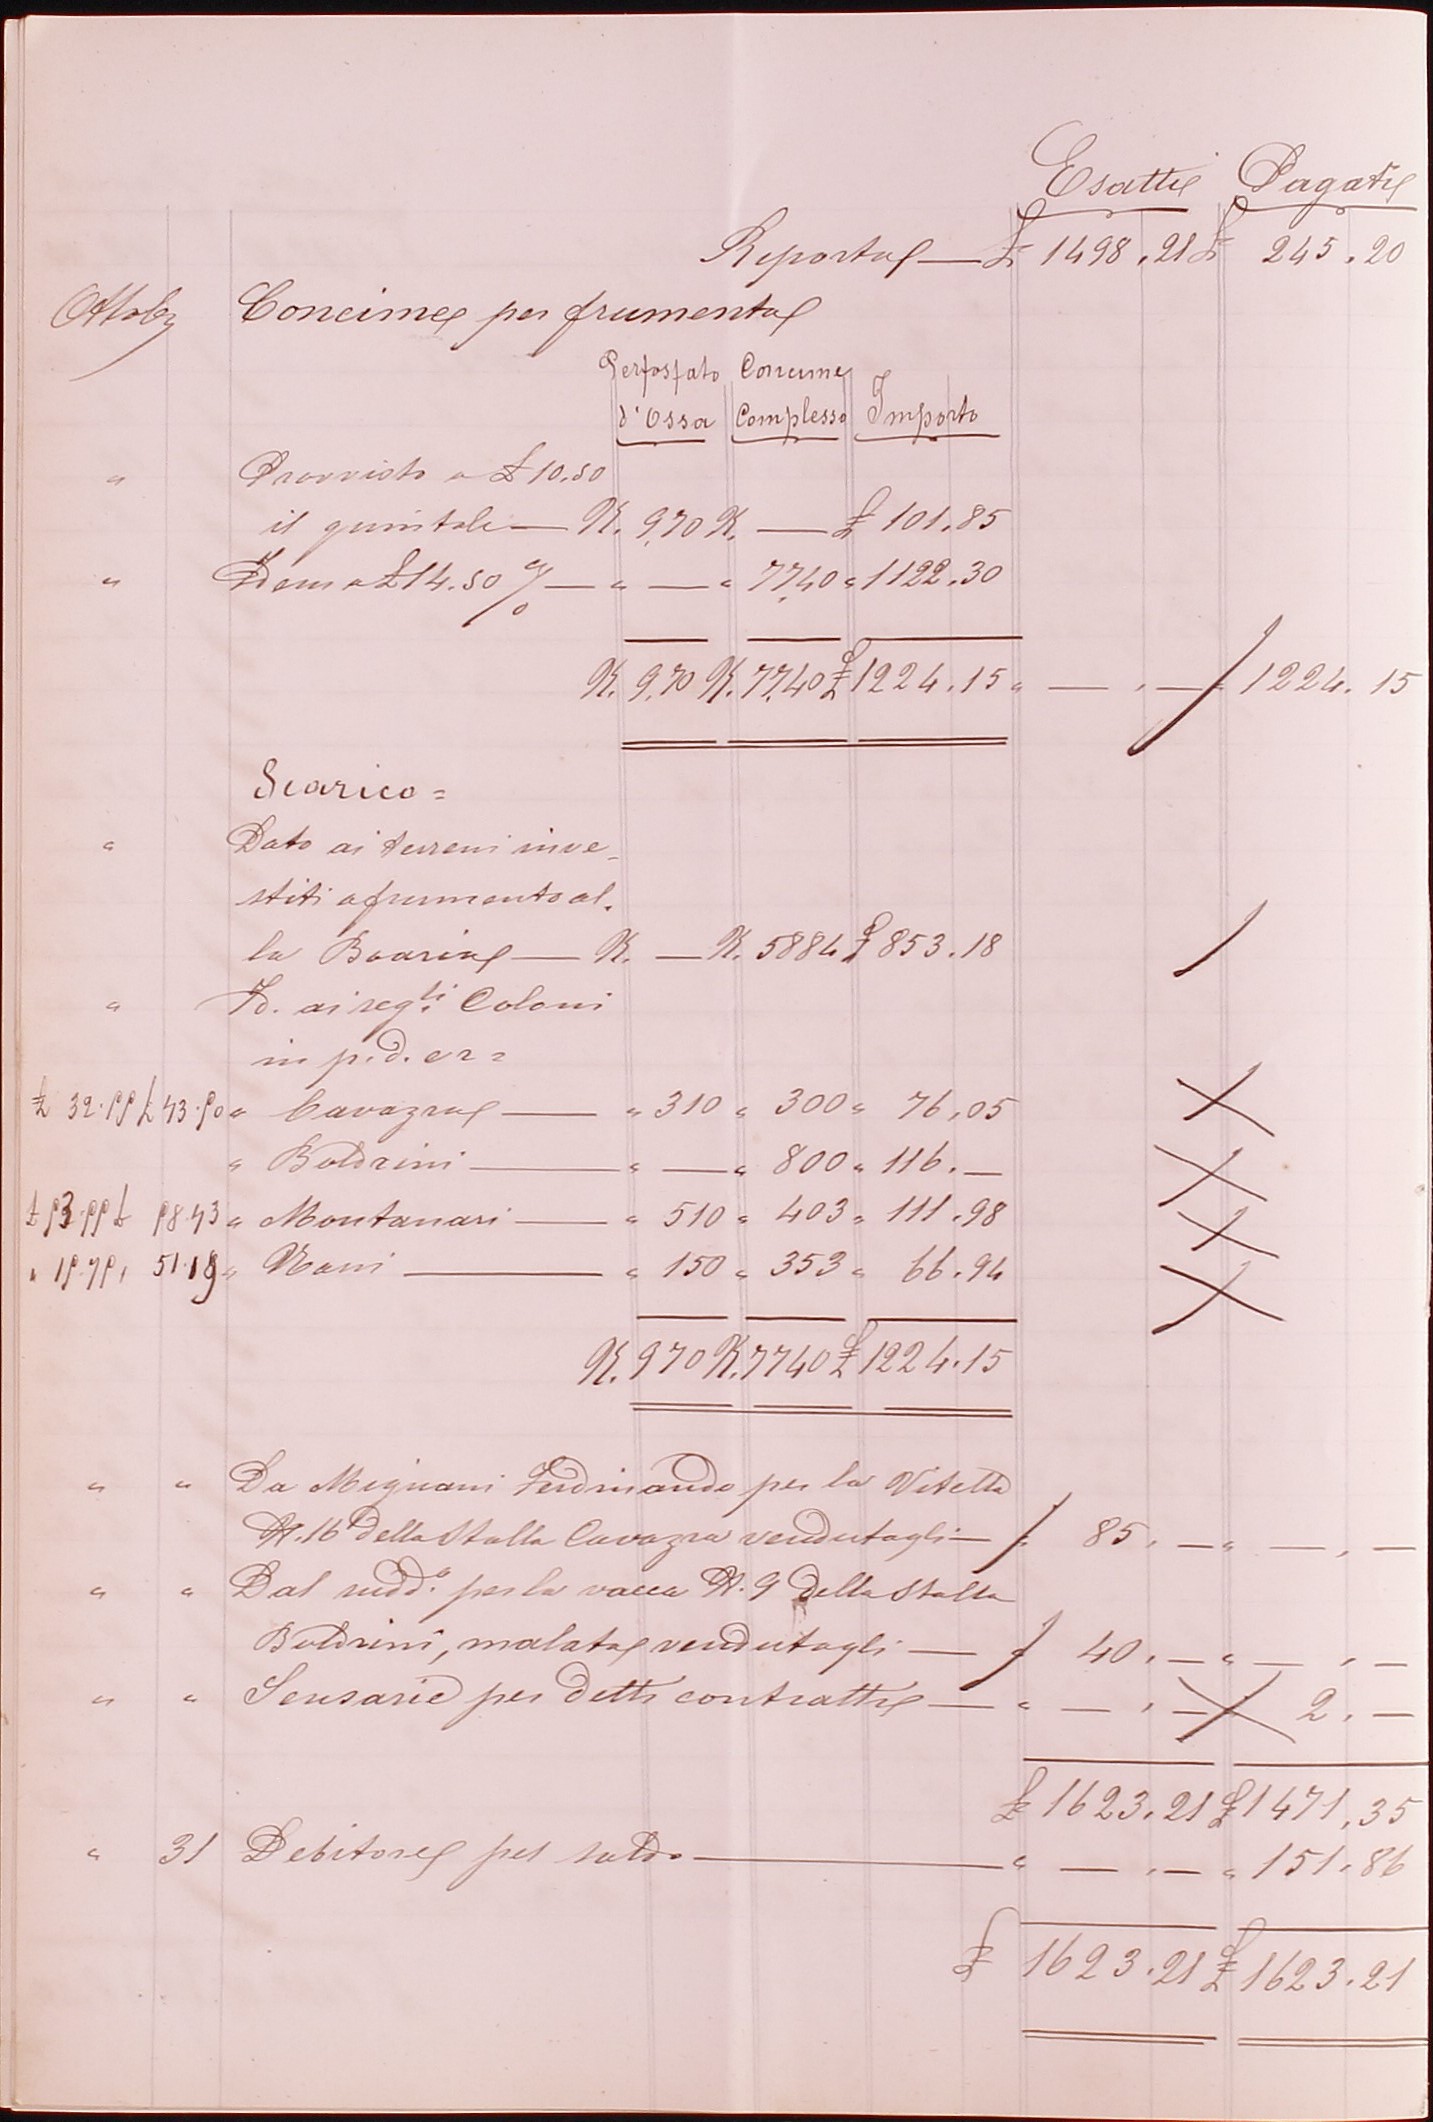 Esatte Pagate
Riporto — £ 1498.21 £ 245.20
Ottobre Concime per frumento
Perfosfato Concime
d'Ossa Complesso Importo
" Provvisto a £ 10.50
il quintale — K. 9,70 K. — £ 101.85
" Idem a £ 14.50 % — " — " 77,40 " 1122.30
K. 9,70 K. 77,40 £ 1224.15 " — . — " 1224.15
Scarico =
" Dato ai terreni inve-
stiti a frumento al-
la Boaria — K. — K. 5884 £ 853.18
" Id. ai segti Coloni
in p. d. er =
" Cavazza — " 310 " 300 " 76.05
" Boldrini — " — " 800 " 116. —
" Montanari — " 510 " 403 " 111.98
" Nani — " 150 " 353 " 66.94
K. 970 K. 7740 £ 1224.15
" " Da Mignani Ferdinando per la Vitella
N. 16 della Stalla Cavazza vendutagli — " 85. — " — . —
" " Dal sudd.o per la vacca N. 9 della Stalla
Boldrini, malata vendutagli — " 40. — " — . —
" " Senserie per detti contratti — " — . — " 2. —
£ 1623.21 £ 1471.35
" 31 Debitore per saldo — " — . — " 151.86
£ 1623.21 £ 1623.21